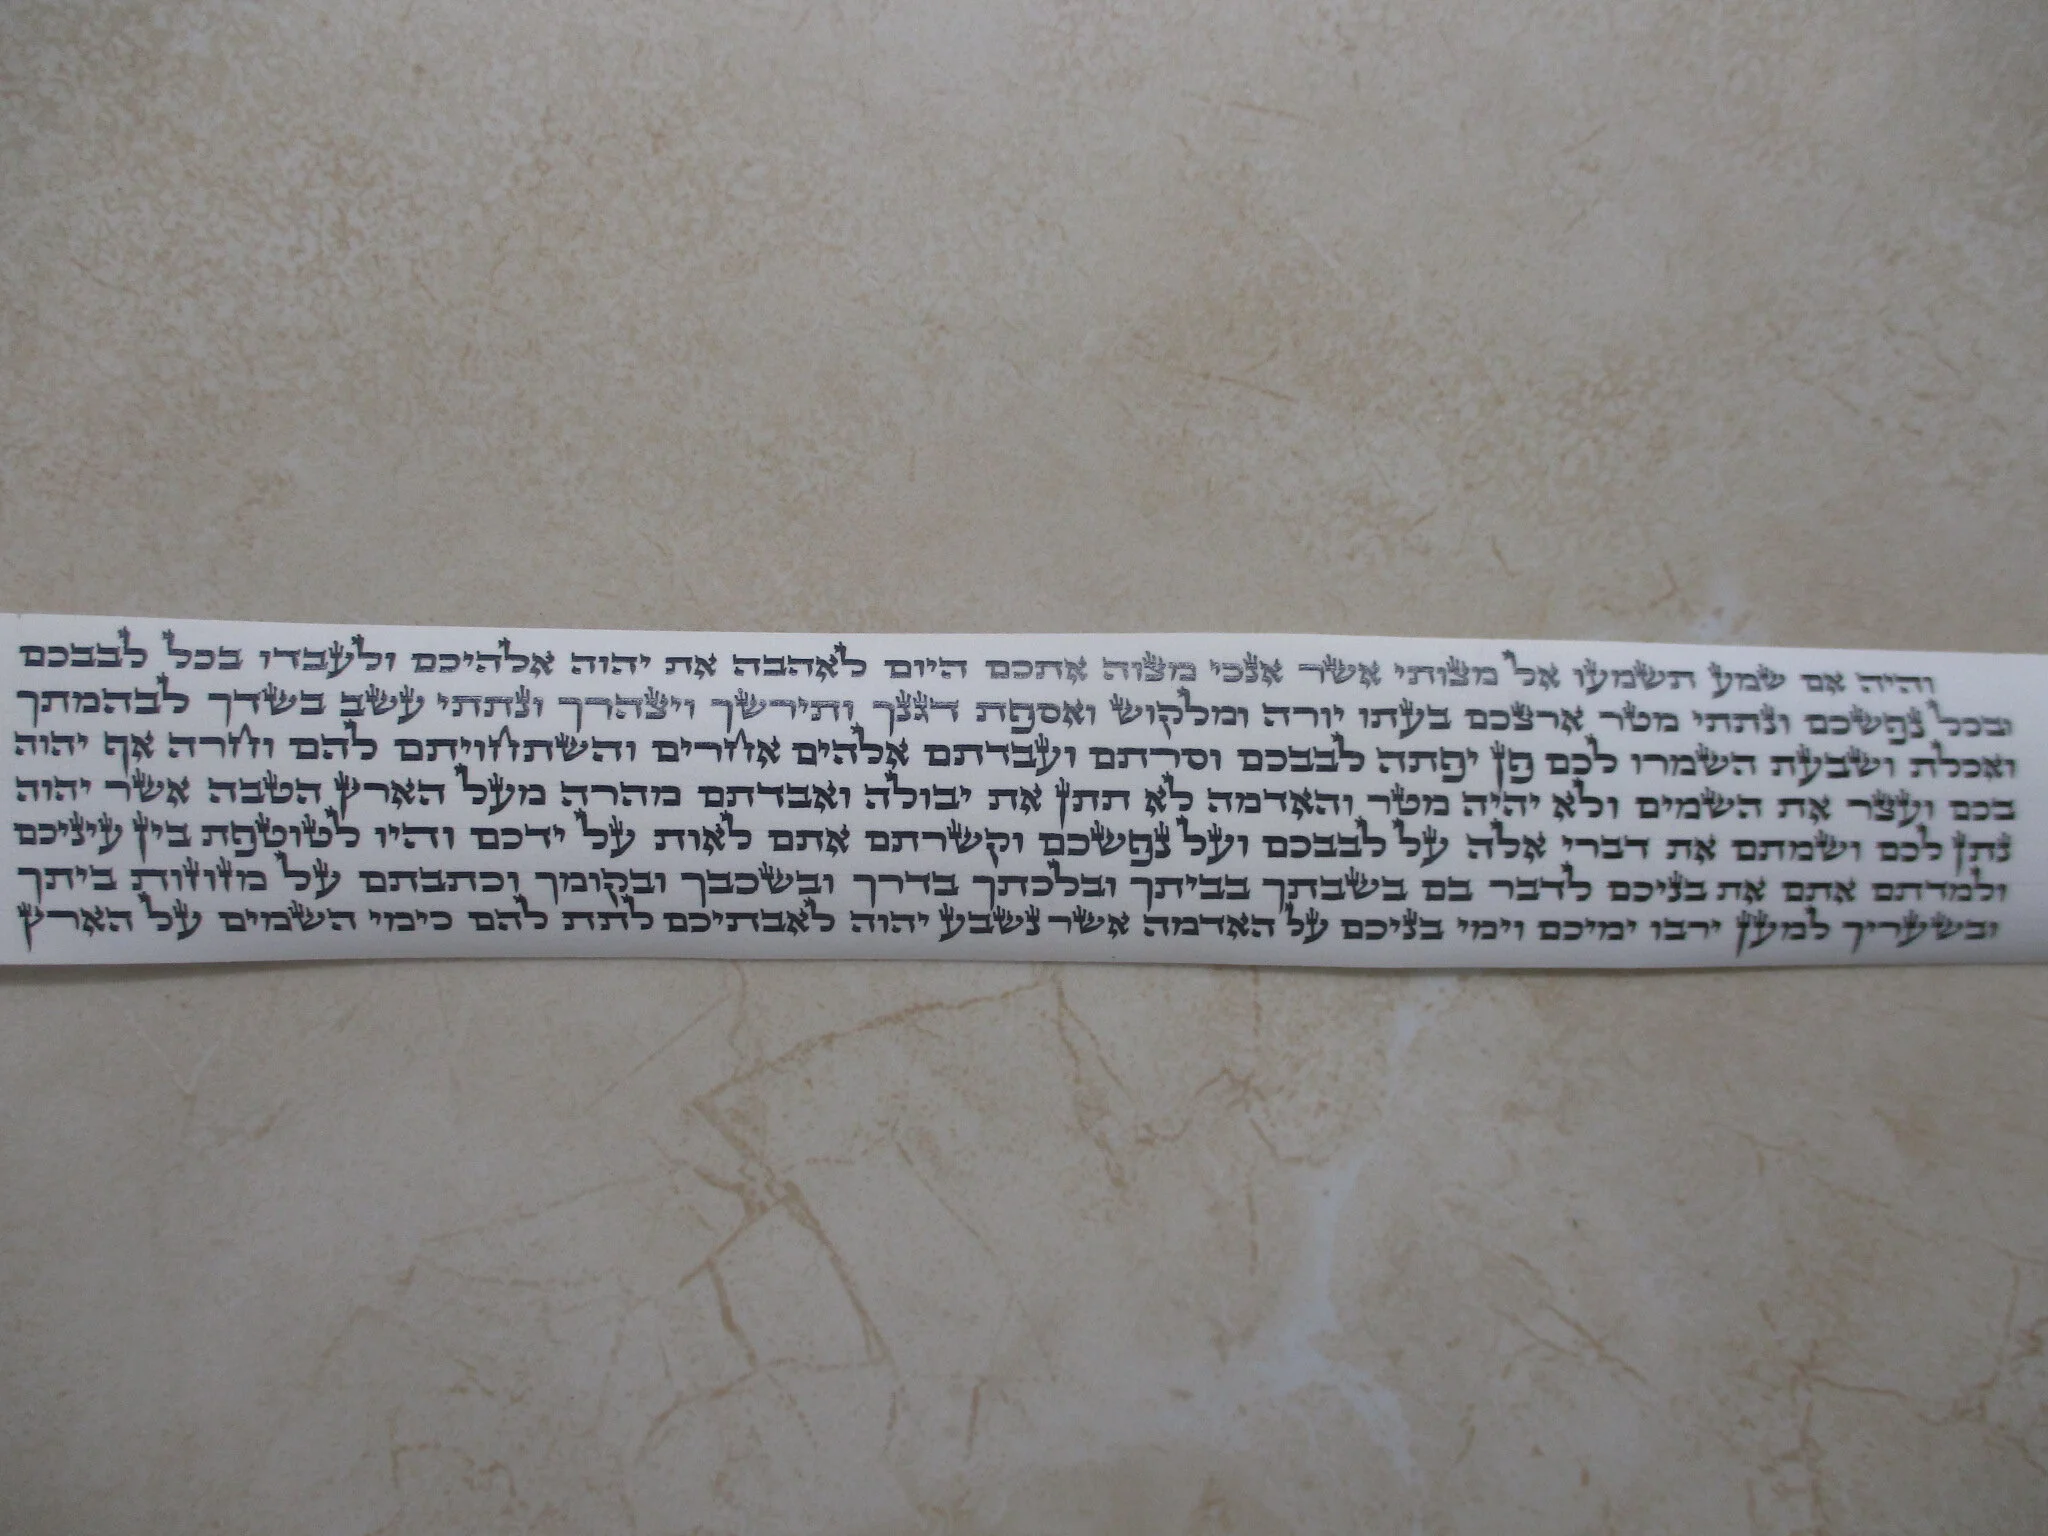 והיה אם שמע תשמעו אל מצותי אשר אנכי מצוה אתכם היום לאהבה את יהוה אלהיכם ולעבדו בכל לבבכם
ובכל נפשכם ונתתי מטר ארצכם בעתו יורה ומלקוש ואספת דגנך ותירשך ויצהרך ונתתי עשב בשדך לבהמתך
ואכלת ושבעת השמרו לכם פן יפתה לבבכם וסרתם ועבדתם אלהים אחרים והשתחויתם להם וחרה אף יהוה
בכם ועצר את השמים ולא יהיה מטר והאדמה לא תתן את יבולה ואבדתם מהרה מעל הארץ הטבה אשר יהוה
נתן לכם ושמתם את דברי אלה על לבבכם ועל נפשכם וקשרתם אתם לאות על ידכם והיו לטוטפת בין עיניכם
ולמדתם אתם את בניכם לדבר בם בשבתך בביתך ובלכתך בדרך ובשכבך ובקומך וכתבתם על מזוזות ביתך
ובשעריך למען ירבו ימיכם וימי בניכם על האדמה אשר נשבע יהוה לאבתיכם לתת להם כימי השמים על הארץ